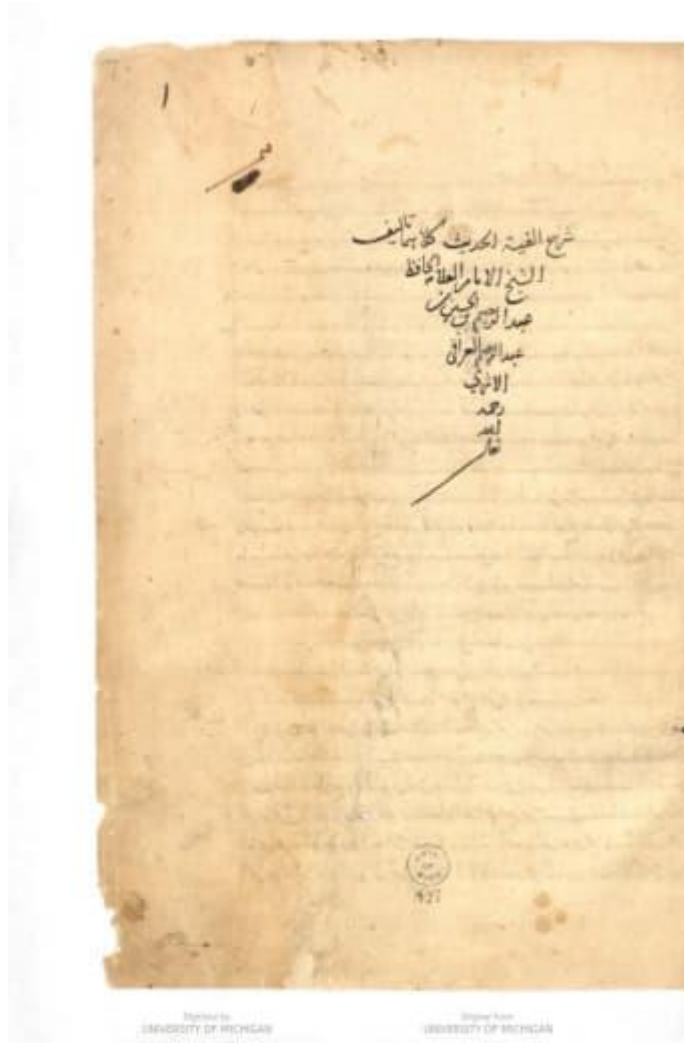 ١
شرح الفية الحديث كلاهما تاليف
الشيخ الامام العلامة الحافظ
شيخ
عبد الرحيم بن الحسين بن
عبد الرحيم العراقي
الاثري
رحمه
الله
تعالى
927
Digitized by
UNIVERSITY OF MICHIGAN
Original from
UNIVERSITY OF MICHIGAN